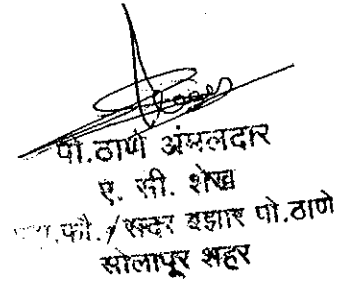 पो.ठाणे अंमलदार
ए. सी. शेख
स.फौ./सदर बझार पो.ठाणे
सोलापूर शहर